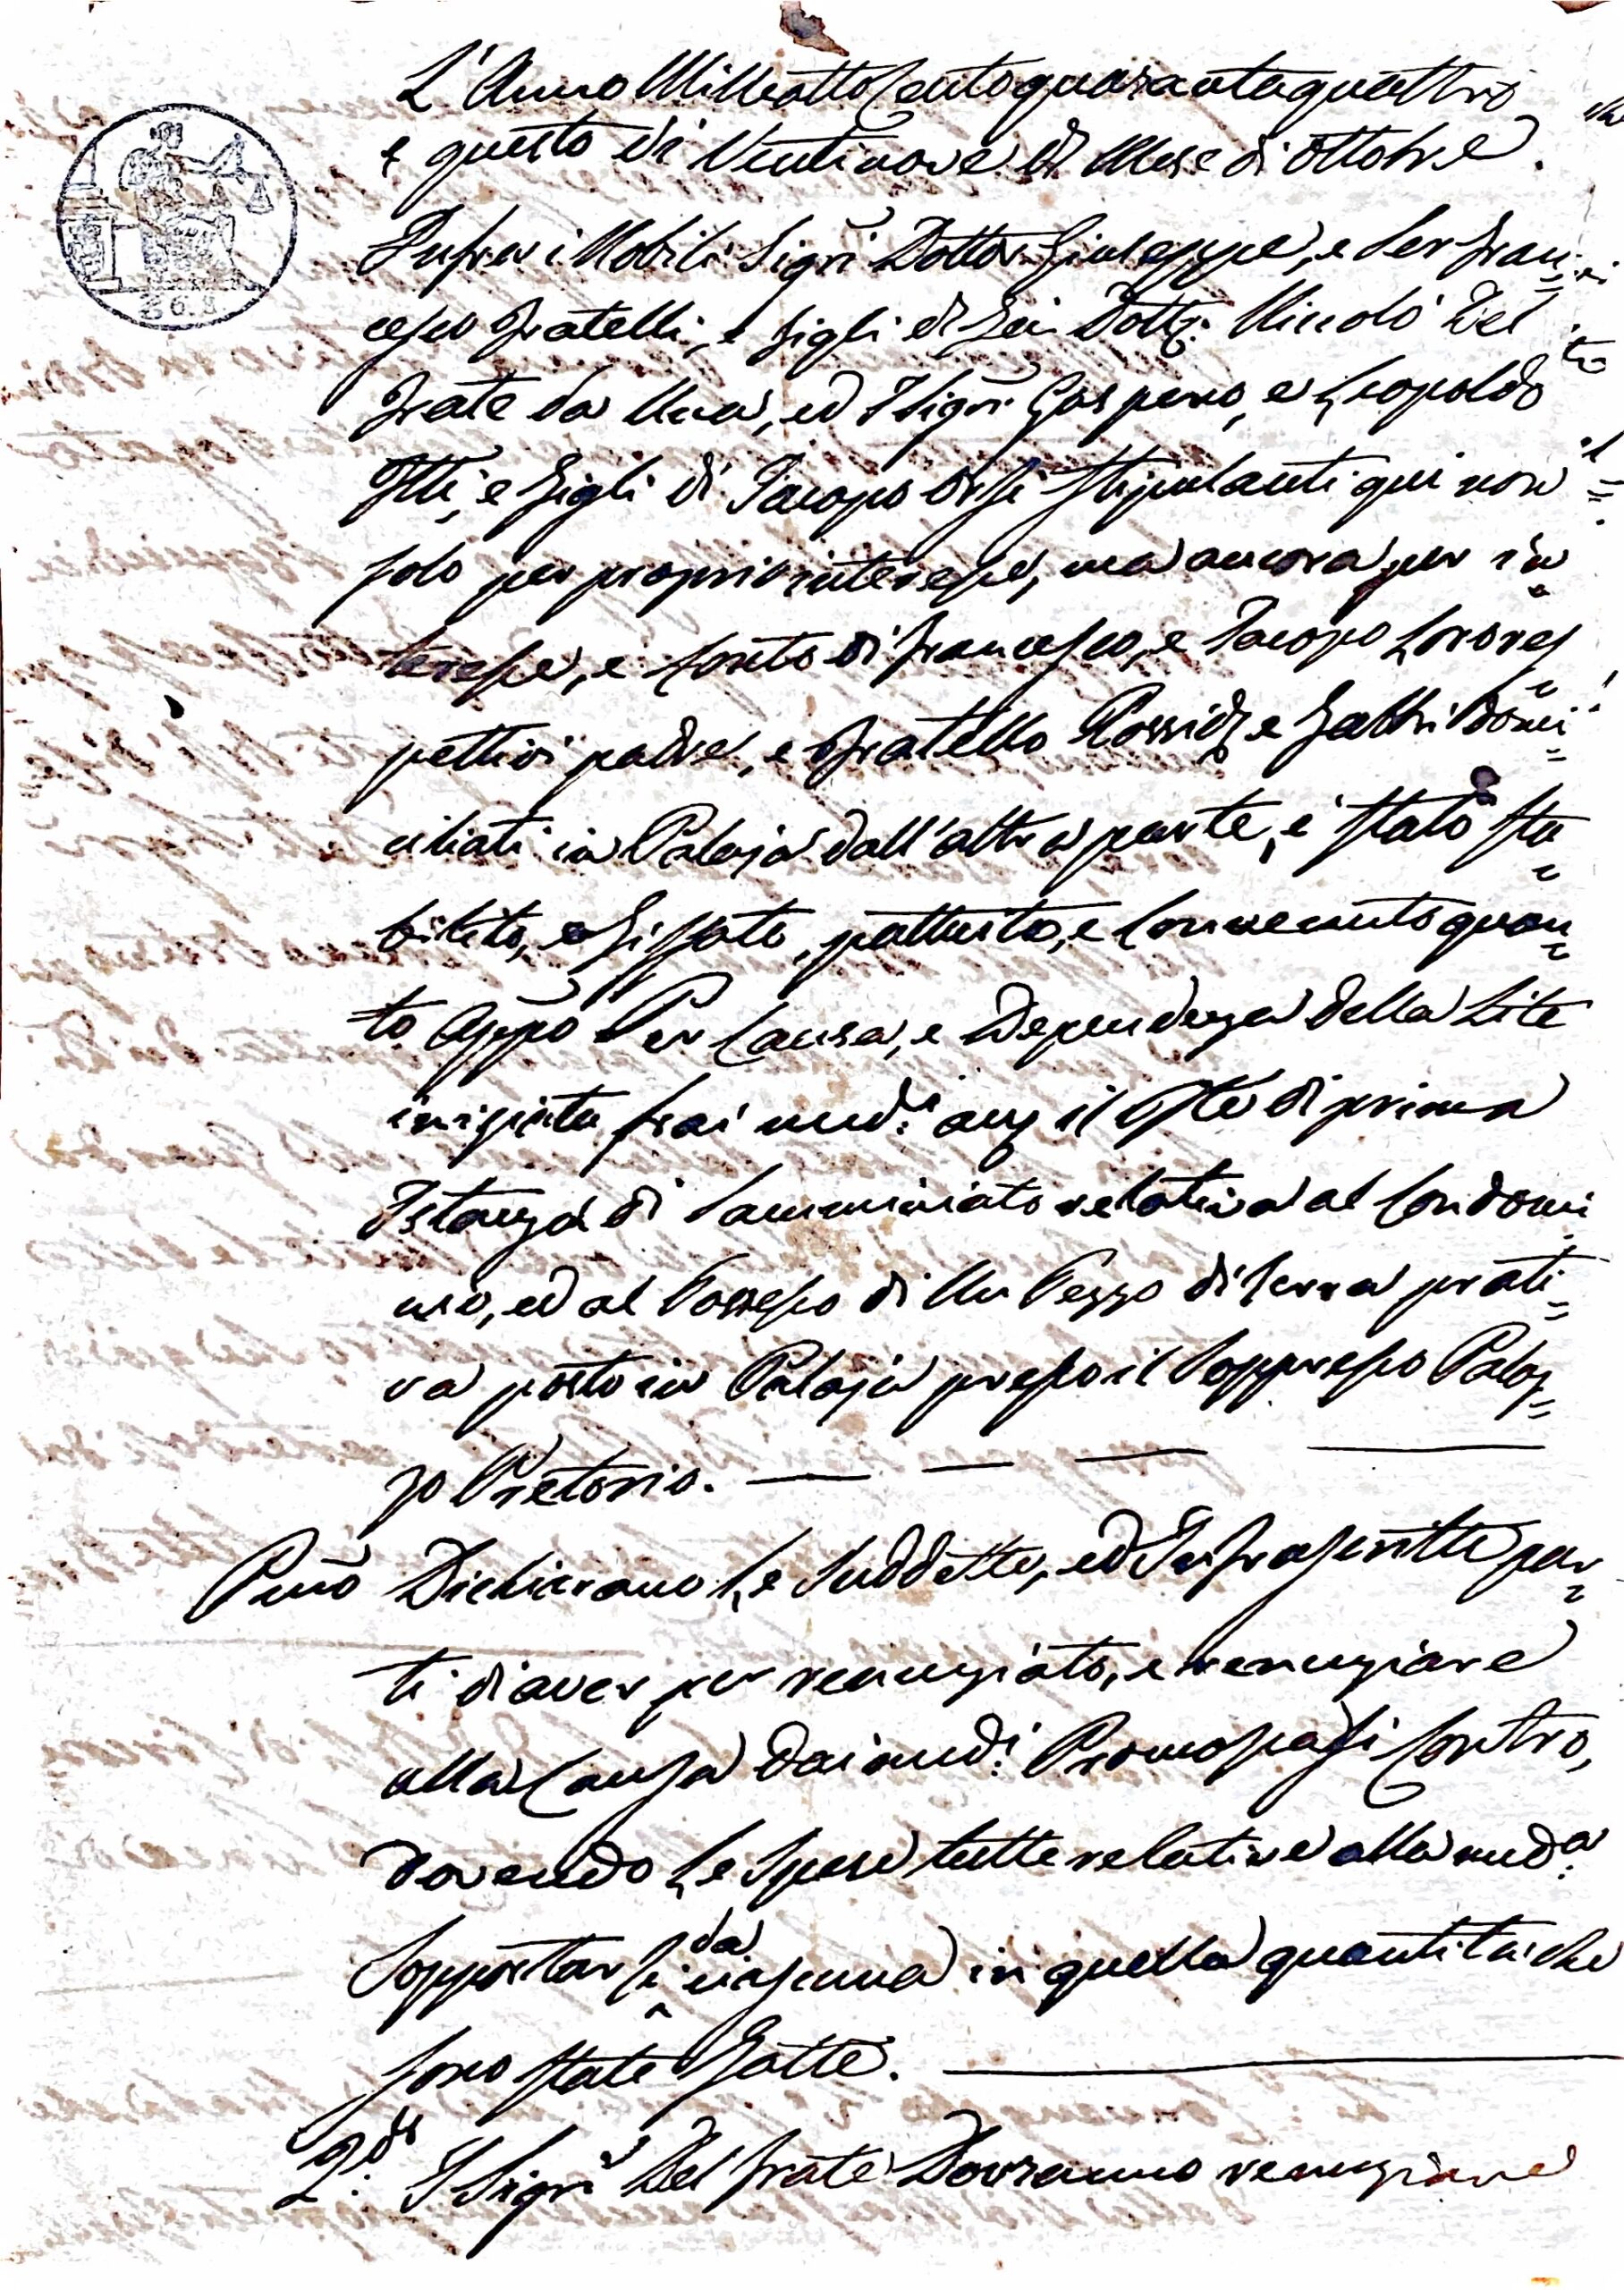 L'Anno Milleottocentoquarantaquattro
e questo dì Ventinove del Mese di Ottobre.
Infra i Nobili Sigri Dottor Giuseppe, e Ser Fran=
cesco Fratelli, e figli del fu Dottr: Niccolò Del
Frate da Una, ed I Sigri Gaspero, e Leopoldo
Flli, e figli di Jacopo Orsi stipulanti qui non
solo per proprio interesse, ma ancora per in=
teresse, e Conto di Francesco, e Jacopo Loro res=
pettivi padre, e fratello Possidti e Fattri domi=
ciliati in Palaja dall'altra parte, è stato sta=
bilito, e fissato, pattuito, e Convenuto quan=
to Appo Per Causa, e Dependenza della Lite
iniziata frai medi: avanti il Tle di prima
Istanza di Samminiato relativa al Condomi=
nio, ed al Possesso di Un Pezzo di terra prati=
va posto in Palaja presso il Soppresso Palaz=
zo Pretorio.
Pmo Dichiarano Le Suddette, ed Infrascritte par=
ti di aver per renunziato, e renunziare
alla Causa dai medi: Promossasi Contro,
dovendo Le Spese tutte relative alla meda:
Sopportarsi da ciascuna in quella quantità che
sono state Fatte.
2do: I Sigri Del Frate Dovranno renunziare